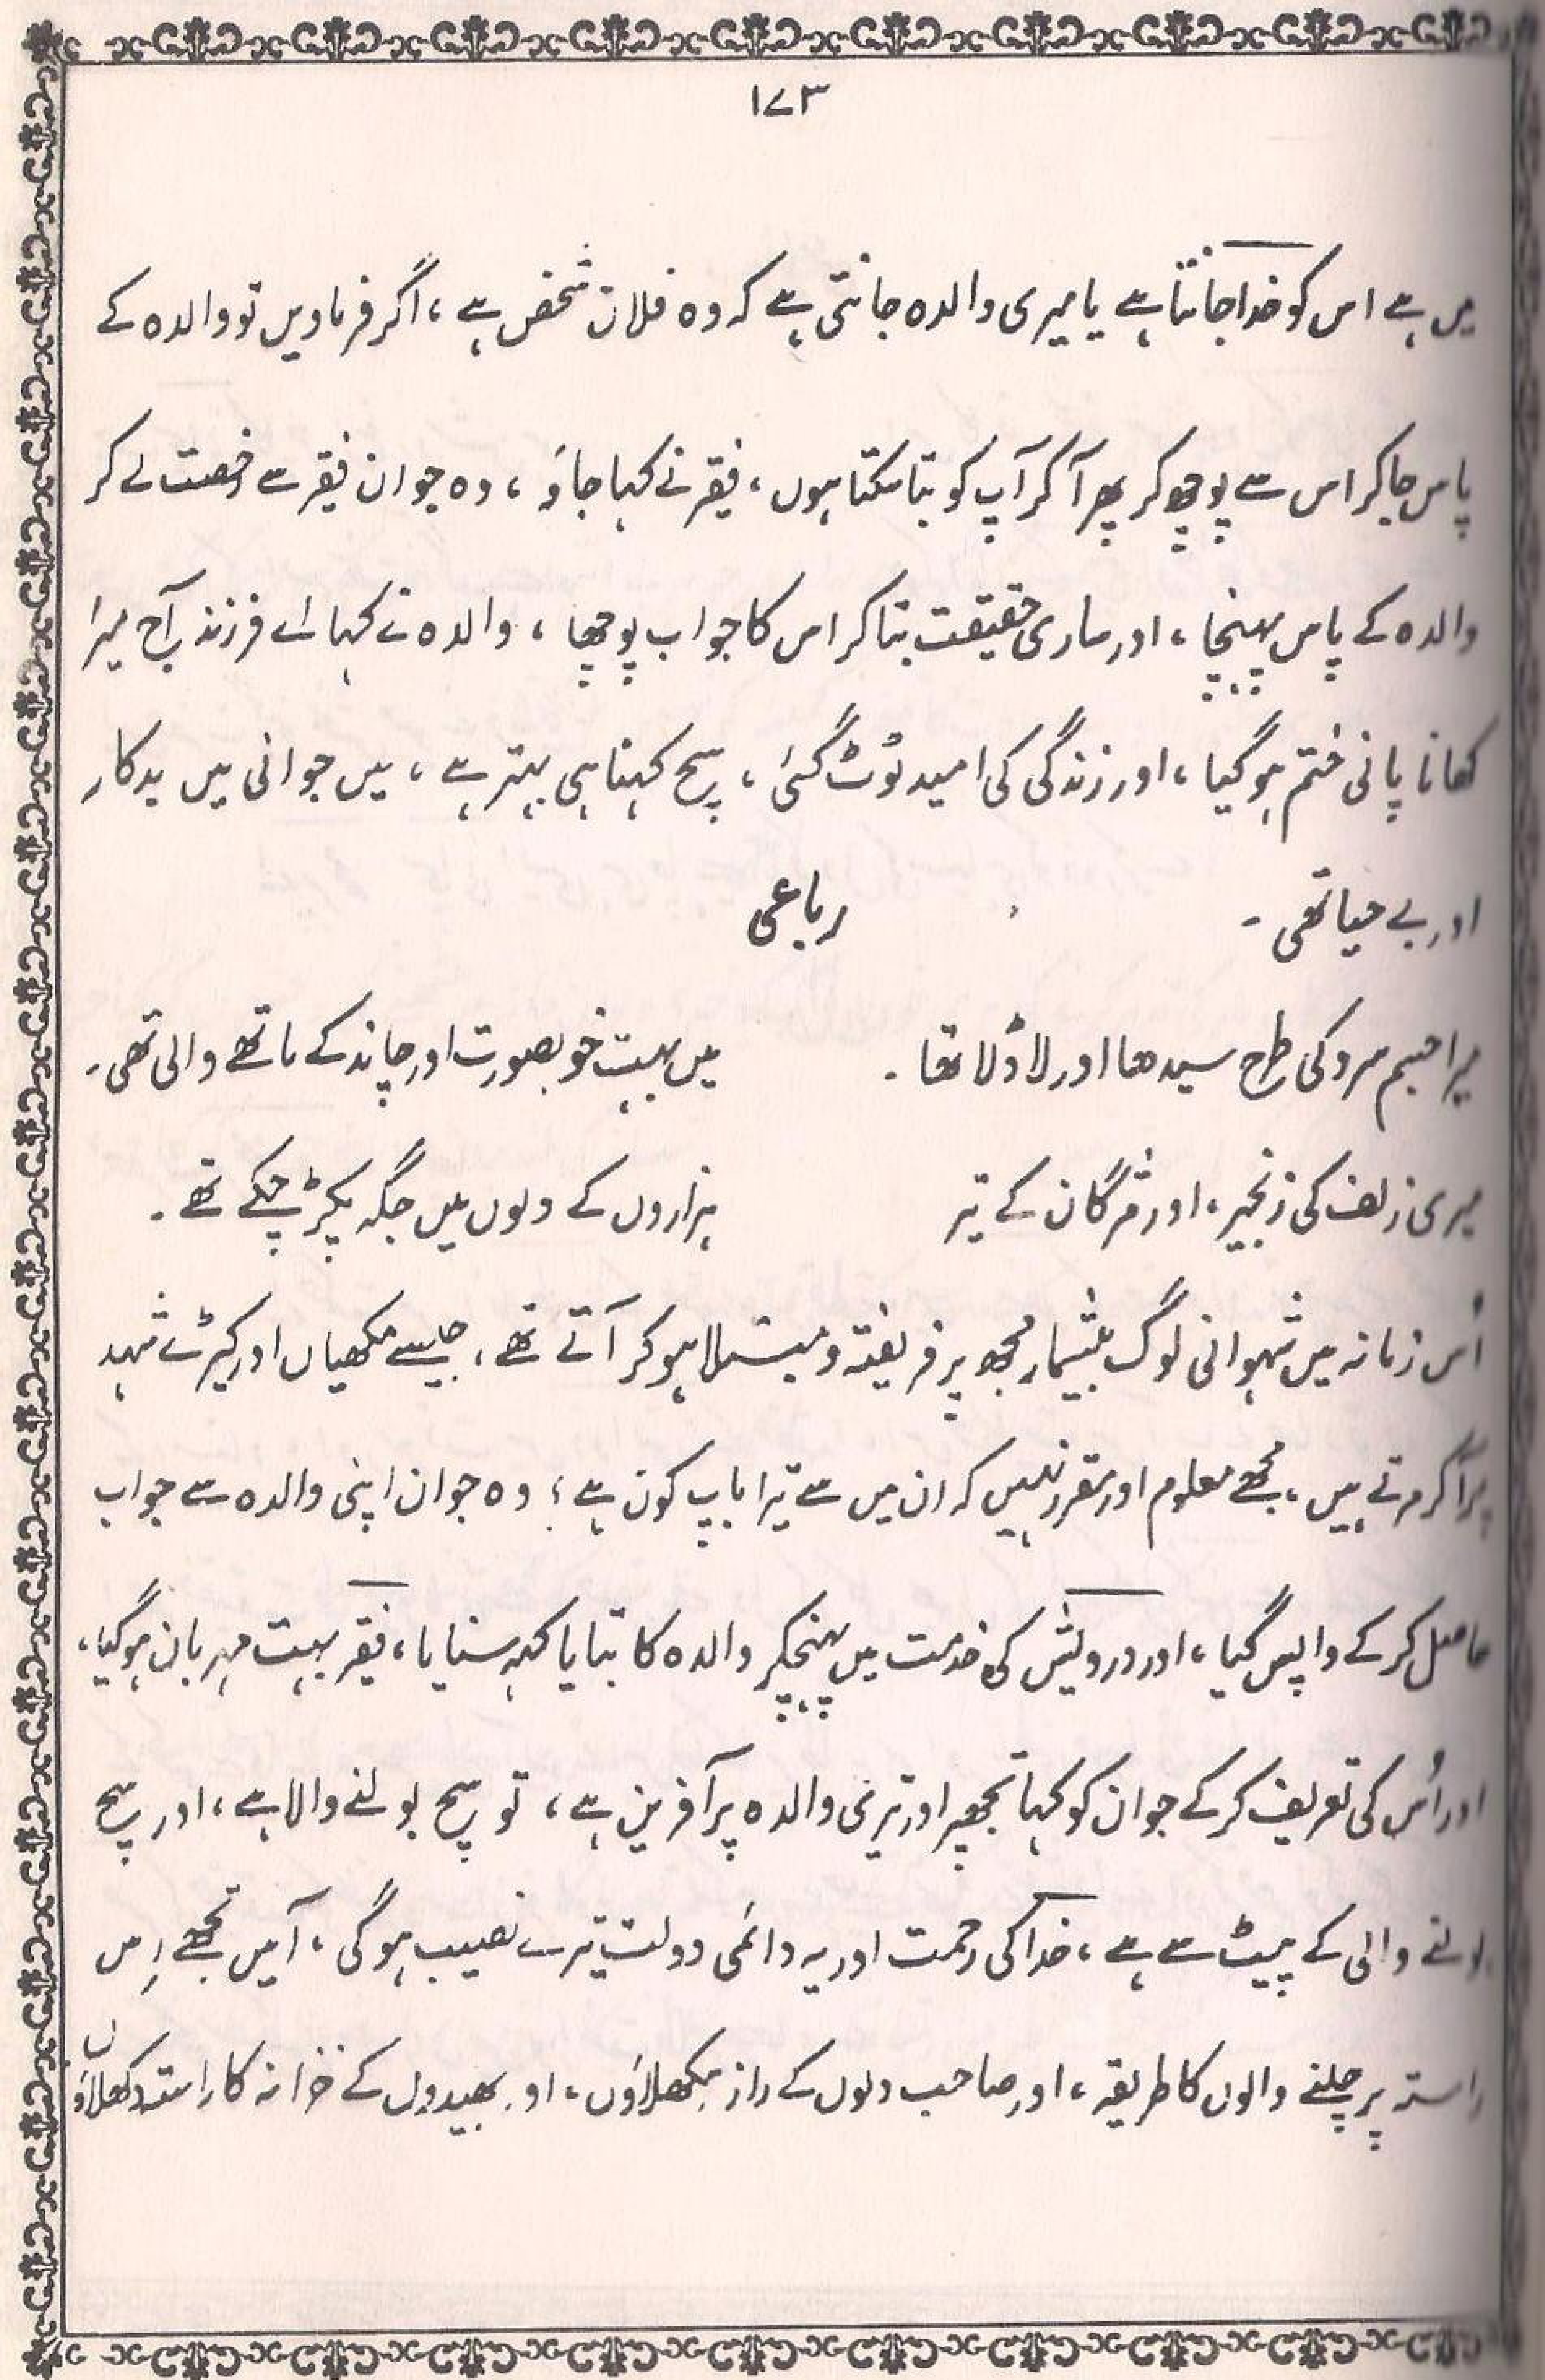 ۱۷۳
میں ہے اس کو خدا جانتا ہے یا میری والدہ جانتی ہے کہ وہ فلان شخص ہے ، اگر فرماویں تو والدہ کے
پاس جا کر اس سے پوچھ کر پھر آ کر آپ کو بتا سکتا ہوں ، فقیر نے کہا جاؤ ، وہ جوان فقیر سے رخصت لے کر
والدہ کے پاس پہنچا ، اور ساری حقیقت بتا کر اس کا جواب پوچھا ، والدہ نے کہا اے فرزند آج میرا
کھانا پانی ختم ہو گیا ، اور زندگی کی امید ٹوٹ گئی ، سچ کہنا ہی بہتر ہے ، میں جوانی میں بدکار
اور بے حیا تھی ۔
رباعی
میرا جسم سرو کی طرح سیدھا اور لاڈلا تھا ۔ میں بہت خوبصورت اور چاند کے ماتھے والی تھی ۔
میری زلف کی زنجیر ، اور مژگان کے تیر ہزاروں کے دلوں میں جگہ پکڑ چکے تھے ۔
اُس زمانہ میں شہوانی لوگ بیشمار مجھ پر فریفتہ و مبتلا ہو کر آتے تھے ، جیسے مکھیاں اور کیڑے شہد
پر آ کر مرتے ہیں ، مجھے معلوم اور مقرر نہیں کہ ان میں سے تیرا باپ کون ہے ؛ وہ جوان اپنی والدہ سے جواب
حاصل کر کے واپس گیا ، اور درویش کی خدمت میں پہنچکر والدہ کا بتایا کہہ سنایا ، فقیر بہت مہربان ہو گیا ،
اور اُس کی تعریف کر کے جوان کو کہا تجھپر اور تیری والدہ پر آفرین ہے ، تو سچ بولنے والا ہے ، اور سچ
بولنے والی کے پیٹ سے ہے ، خدا کی رحمت اور یہ دائمی دولت تیرے نصیب ہو گی ، آ میں تجھے اِس
راستہ پر چلنے والوں کا طریقہ ، اور صاحب دلوں کے راز سِکھلاؤں ، اور بھیدوں کے خزانہ کا راستہ دکھلاؤں